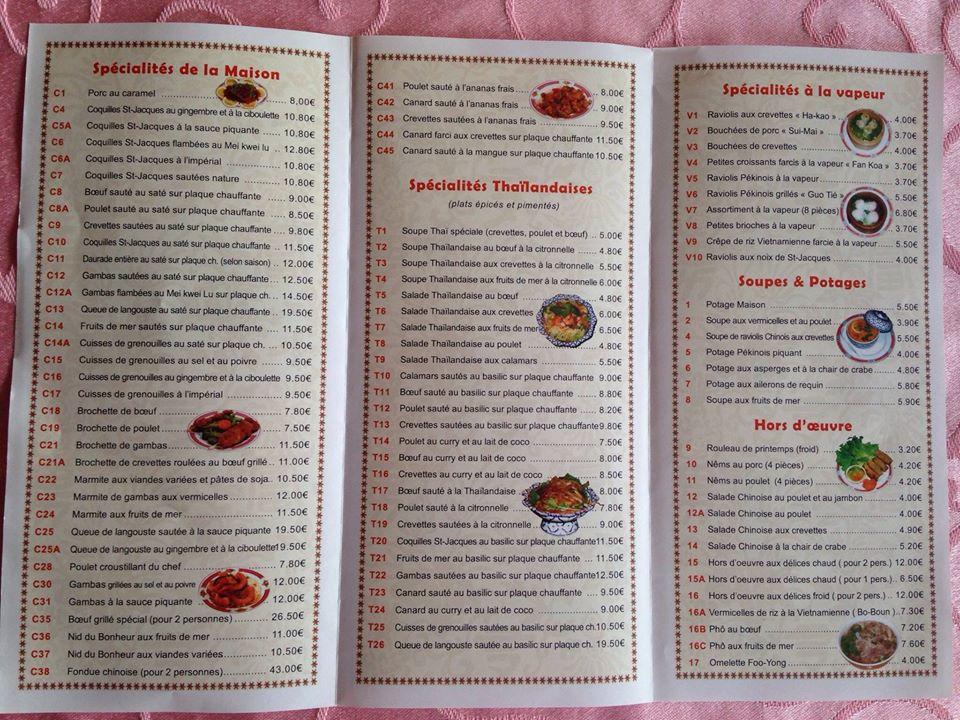 Spécialités de la Maison
C1 Porc au caramel ........ 8,00€
C4 Coquilles St-Jacques au gingembre et à la ciboulette 10.80€
C5A Coquilles St-Jacques à la sauce piquante ...... 10.80€
C6 Coquilles St-Jacques flambées au Mei kwei lu .. 12.80€
C6A Coquilles St-Jacques à l'impérial ............ 10.80€
C7 Coquilles St-Jacques sautées nature ............ 10.80€
C8 Bœuf sauté au saté sur plaque chauffante ...... 9.00€
C8A Poulet sauté au saté sur plaque chauffante ..... 8.50€
C9 Crevettes sautées au saté sur plaque chauffante .... 9.80€
C10 Coquilles St-Jacques au saté sur plaque chauffante .. 11.50€
C11 Daurade entière au saté sur plaque ch. (selon saison) .. 12.00€
C12 Gambas sautées au saté sur plaque chauffante ... 12.50€
C12A Gambas flambées au Mei kwei Lu sur plaque ch. .. 14.50€
C13 Queue de langouste au saté sur plaque chauffante .. 19.50€
C14 Fruits de mer sautés sur plaque chauffante .... 11.50€
C14A Cuisses de grenouilles au saté sur plaque ch. ... 10.50€
C15 Cuisses de grenouilles au sel et au poivre ...... 9.50€
C16 Cuisses de grenouilles au gingembre et à la ciboulette 9.50€
C17 Cuisses de grenouilles à l'impérial .............. 9.50€
C18 Brochette de bœuf .............. 7.80€
C19 Brochette de poulet .............. 7.50€
C21 Brochette de gambas .............. 11.50€
C21A Brochette de crevettes roulées au bœuf grillé .. 11.00€
C22 Marmite aux viandes variées et pâtes de soja .. 10.50€
C23 Marmite de gambas aux vermicelles .............. 12.00€
C24 Marmite aux fruits de mer .............. 11.50€
C25 Queue de langouste sautée à la sauce piquante 19.50€
C25A Queue de langouste au gingembre et à la ciboulette 19.50€
C28 Poulet croustillant du chef .............. 7.80€
C30 Gambas grillées au sel et au poivre 12.00€
C31 Gambas à la sauce piquante .. 12.00€
C35 Bœuf grillé spécial (pour 2 personnes) ......... 26.50€
C36 Nid du Bonheur aux fruits de mer .............. 11.00€
C37 Nid du Bonheur aux viandes variées ............ 10.50€
C38 Fondue chinoise (pour 2 personnes) ............ 43.00€
C41 Poulet sauté à l'ananas frais ...... 8.00€
C42 Canard sauté à l'ananas frais ...... 9.00€
C43 Crevettes sautées à l'ananas frais .............. 9.50€
C44 Canard farci aux crevettes sur plaque chauffante 11.50€
C45 Canard sauté à la mangue sur plaque chauffante 10.50€
Spécialités Thaïlandaises
(plats épicés et pimentés)
T1 Soupe Thaï spéciale (crevettes, poulet et bœuf) .. 5.00€
T2 Soupe Thaïlandaise au bœuf à la citronnelle .... 4.80€
T3 Soupe Thaïlandaise aux crevettes à la citronnelle 5.50€
T4 Soupe Thaïlandaise aux fruits de mer à la citronnelle 6.00€
T5 Salade Thaïlandaise au bœuf .... 4.80€
T6 Salade Thaïlandaise aux crevettes 6.00€
T7 Salade Thaïlandaise aux fruits de mer 6.50€
T8 Salade Thaïlandaise au poulet .... 4.80€
T9 Salade Thaïlandaise aux calamars .............. 5.50€
T10 Calamars sautés au basilic sur plaque chauffante 9.00€
T11 Bœuf sauté au basilic sur plaque chauffante .... 8.80€
T12 Poulet sauté au basilic sur plaque chauffante .... 8.20€
T13 Crevettes sautées au basilic sur plaque chauffante 9.80€
T14 Poulet au curry et au lait de coco .............. 7.50€
T15 Bœuf au curry et au lait de coco .............. 8.00€
T16 Crevettes au curry et au lait de coco ............ 8.50€
T17 Bœuf sauté à la Thaïlandaise .. 8.00€
T18 Poulet sauté à la citronnelle .... 7.80€
T19 Crevettes sautées à la citronnelle .... 9.00€
T20 Coquilles St-Jacques au basilic sur plaque chauffante 11.50€
T21 Fruits de mer au basilic sur plaque chauffante .... 11.50€
T22 Gambas sautées au basilic sur plaque chauffante 12.50€
T23 Canard sauté au basilic sur plaque chauffante .... 9.50€
T24 Canard au curry et au lait de coco .............. 9.00€
T25 Cuisses de grenouilles sautées au basilic sur plaque ch. 10.50€
T26 Queue de langouste sautée au basilic sur plaque ch. 19.50€
Spécialités à la vapeur
V1 Raviolis aux crevettes « Ha-kao » .. 4.00€
V2 Bouchées de porc « Sui-Mai » .... 3.70€
V3 Bouchées de crevettes .......... 4.00€
V4 Petites croissants farcis à la vapeur « Fan Koa » 3.70€
V5 Raviolis Pékinois à la vapeur .............. 3.70€
V6 Raviolis Pékinois grillés « Guo Tié » 5.50€
V7 Assortiment à la vapeur (8 pièces) 6.80€
V8 Petites brioches à la vapeur .... 3.70€
V9 Crêpe de riz Vietnamienne farcie à la vapeur ...... 5.50€
V10 Raviolis aux noix de St-Jacques .............. 4.00€
Soupes & Potages
1 Potage Maison .............. 5.50€
2 Soupe aux vermicelles et au poulet ... 3.90€
4 Soupe de raviolis Chinois aux crevettes 5.50€
5 Potage Pékinois piquant ........ 4.00€
6 Potage aux asperges et à la chair de crabe ...... 4.80€
7 Potage aux ailerons de requin .............. 5.80€
8 Soupe aux fruits de mer .............. 5.90€
Hors d'œuvre
9 Rouleau de printemps (froid) .... 3.20€
10 Nêms au porc (4 pièces) ........ 4.20€
11 Nêms au poulet (4 pièces) ...... 4.20€
12 Salade Chinoise au poulet et au jambon .. 4.00€
12A Salade Chinoise au poulet .............. 4.00€
13 Salade Chinoise aux crevettes .............. 4.90€
14 Salade Chinoise à la chair de crabe .......... 5.20€
15 Hors d'oeuvre aux délices chaud ( pour 2 pers.) 12.00€
15A Hors d'oeuvre aux délices chaud ( pour 1 pers.) .. 6.50€
16 Hors d'oeuvre aux délices froid ( pour 2 pers.) .. 12.00€
16A Vermicelles de riz à la Vietnamienne ( Bo-Boun ) .. 7.30€
16B Phô au bœuf .............. 7.20€
16C Phô aux fruits de mer ........ 7.60€
17 Omelette Foo-Yong ........ 4.00€